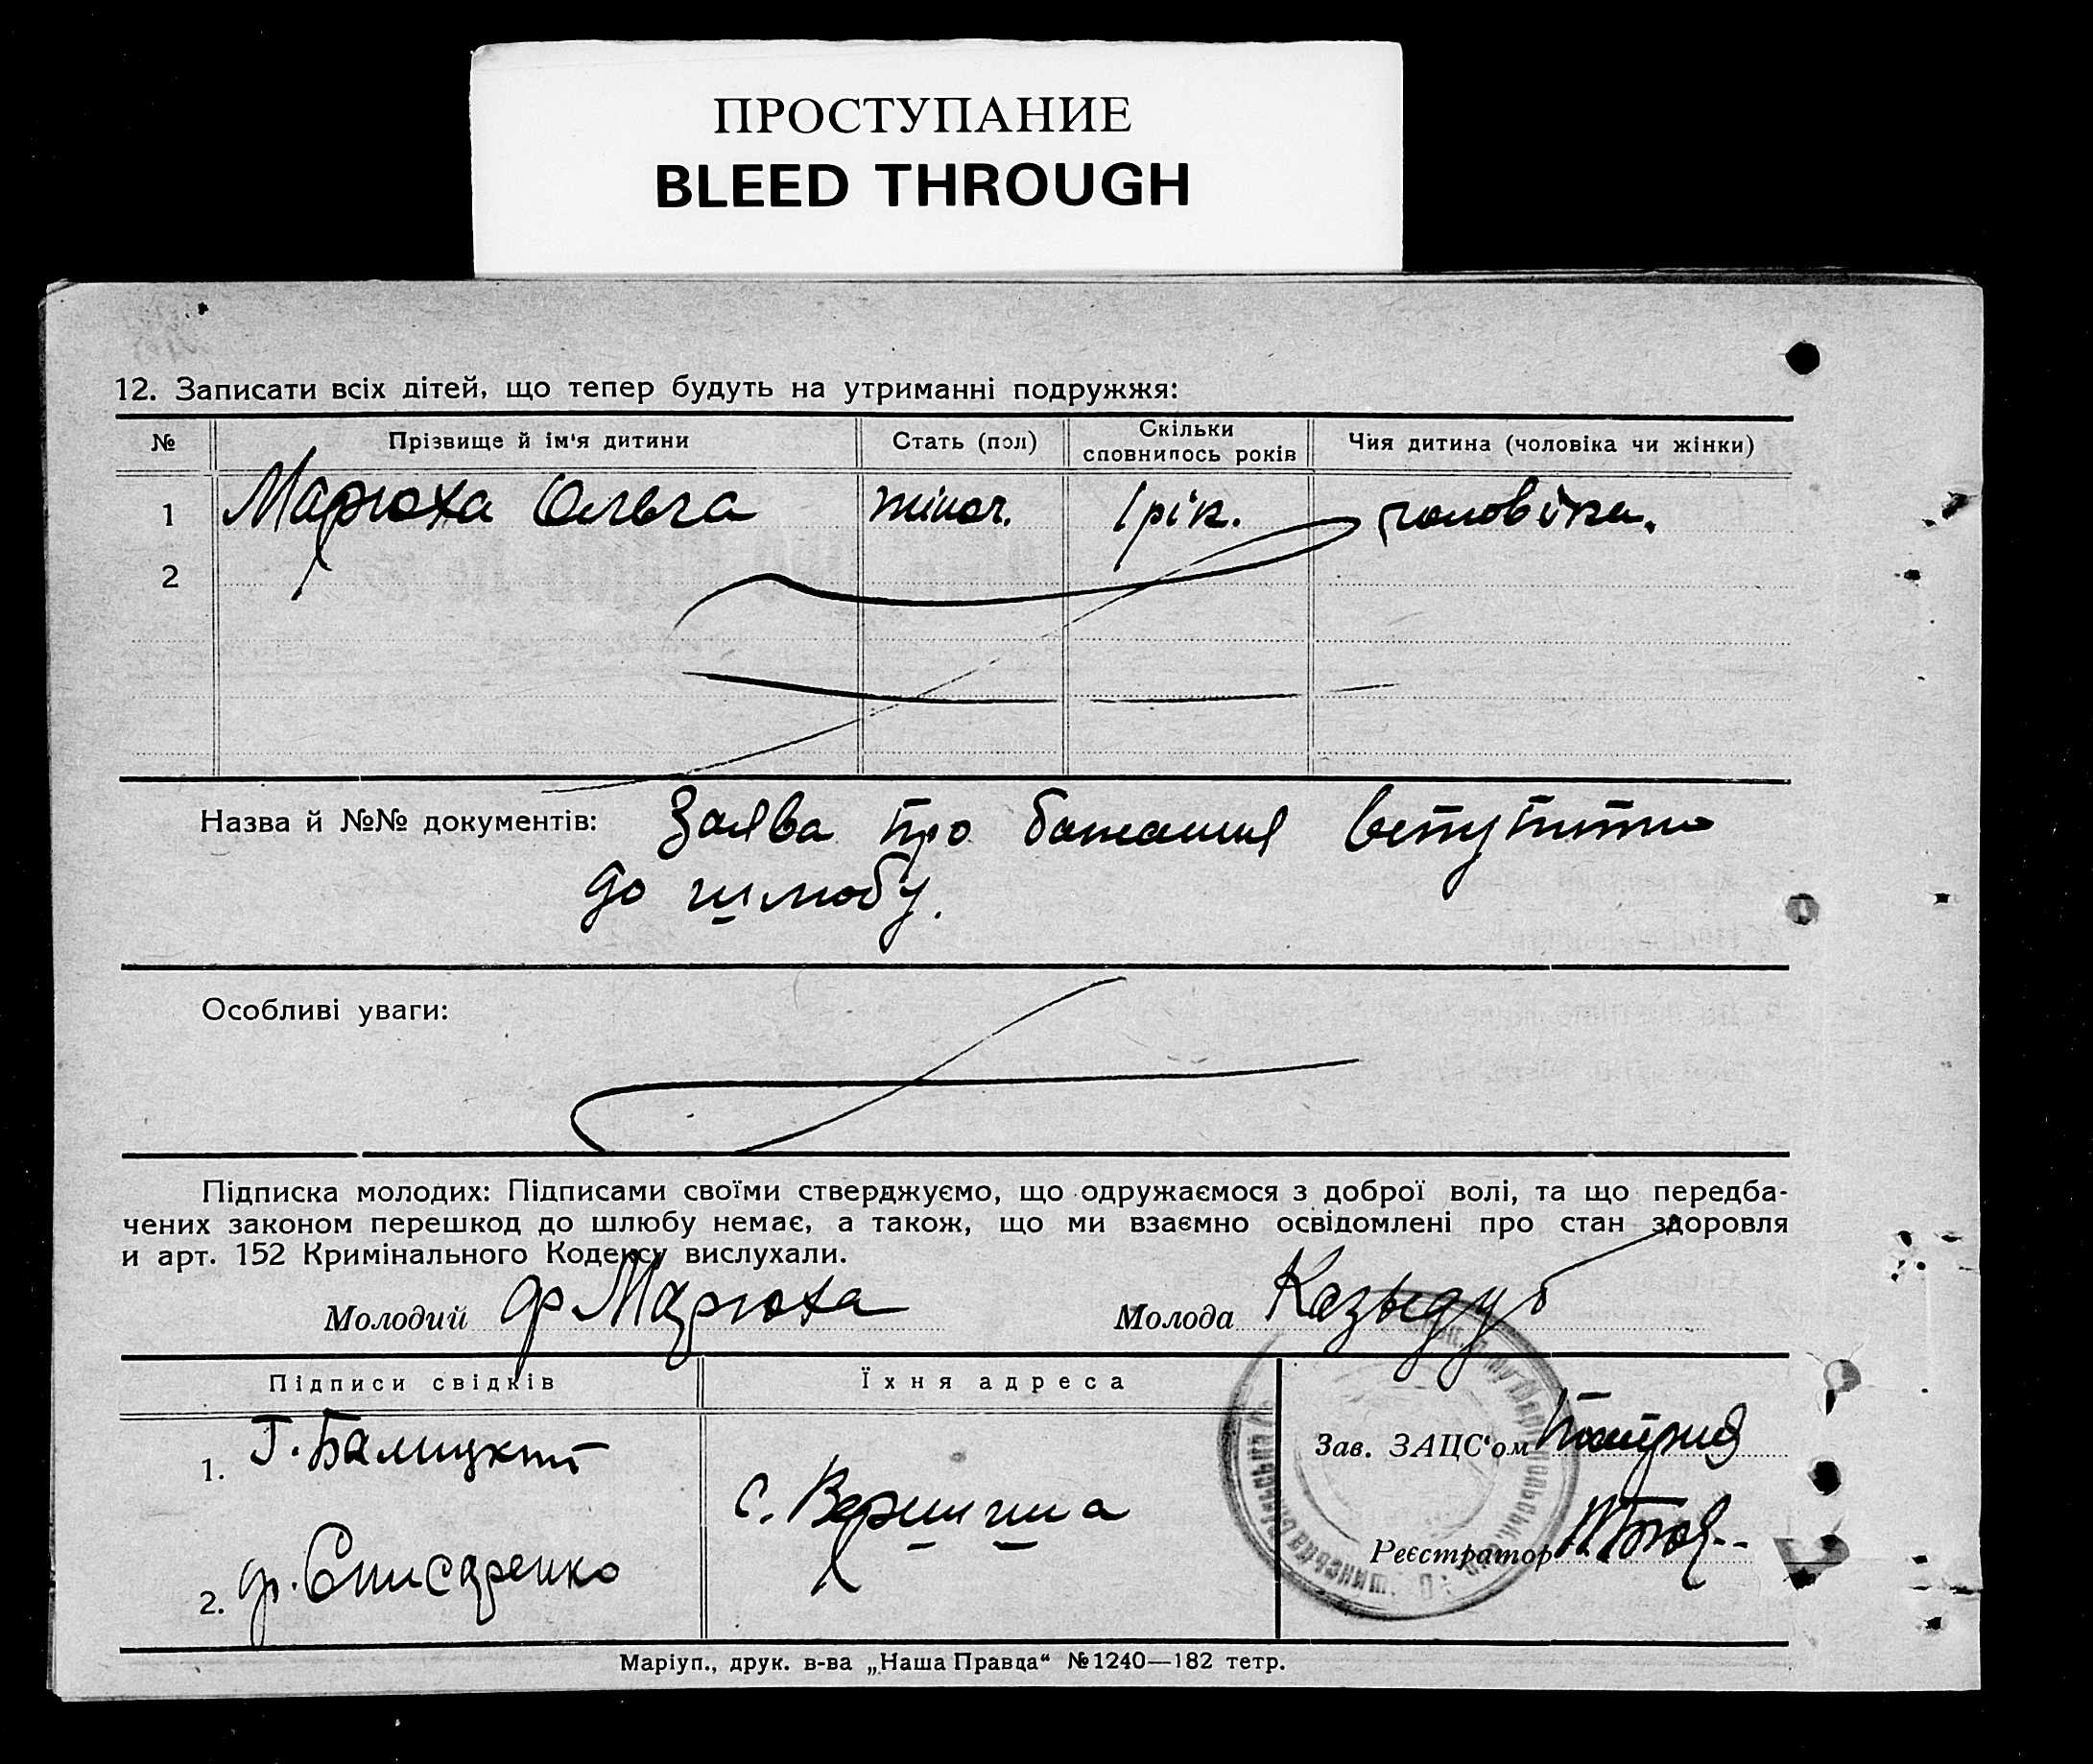 ПРОСТУПАНИЕ
BLEED THROUGH
12. Записати всіх дітей, що тепер будуть на утриманні подружжя:
№ Прізвище й ім'я дитини Стать (пол) Скільки сповнилось років Чия дитина (чоловіка чи жінки)
1 Марюха Ольга жіноч. 1 рік. чоловіка.
2
Назва й №№ документів: Заява про бажання вступити
до шлюбу.
Особливі уваги:
Підписка молодих: Підписами своїми стверджуємо, що одружаємося з доброї волі, та що передба-
чених законом перешкод до шлюбу немає, а також, що ми взаємно освідомлені про стан здоровля
и арт. 152 Кримінального Кодексу вислухали.
Молодий ф Марюха Молода Казьедуб
Підписи свідків Їхня адреса
1. Г. Балицкий Зав. ЗАЦС'ом
с. Вершина
2. ф. Слисаренко Реєстратор
Маріуп., друк. в-ва „Наша Правда“ №1240—182 тетр.